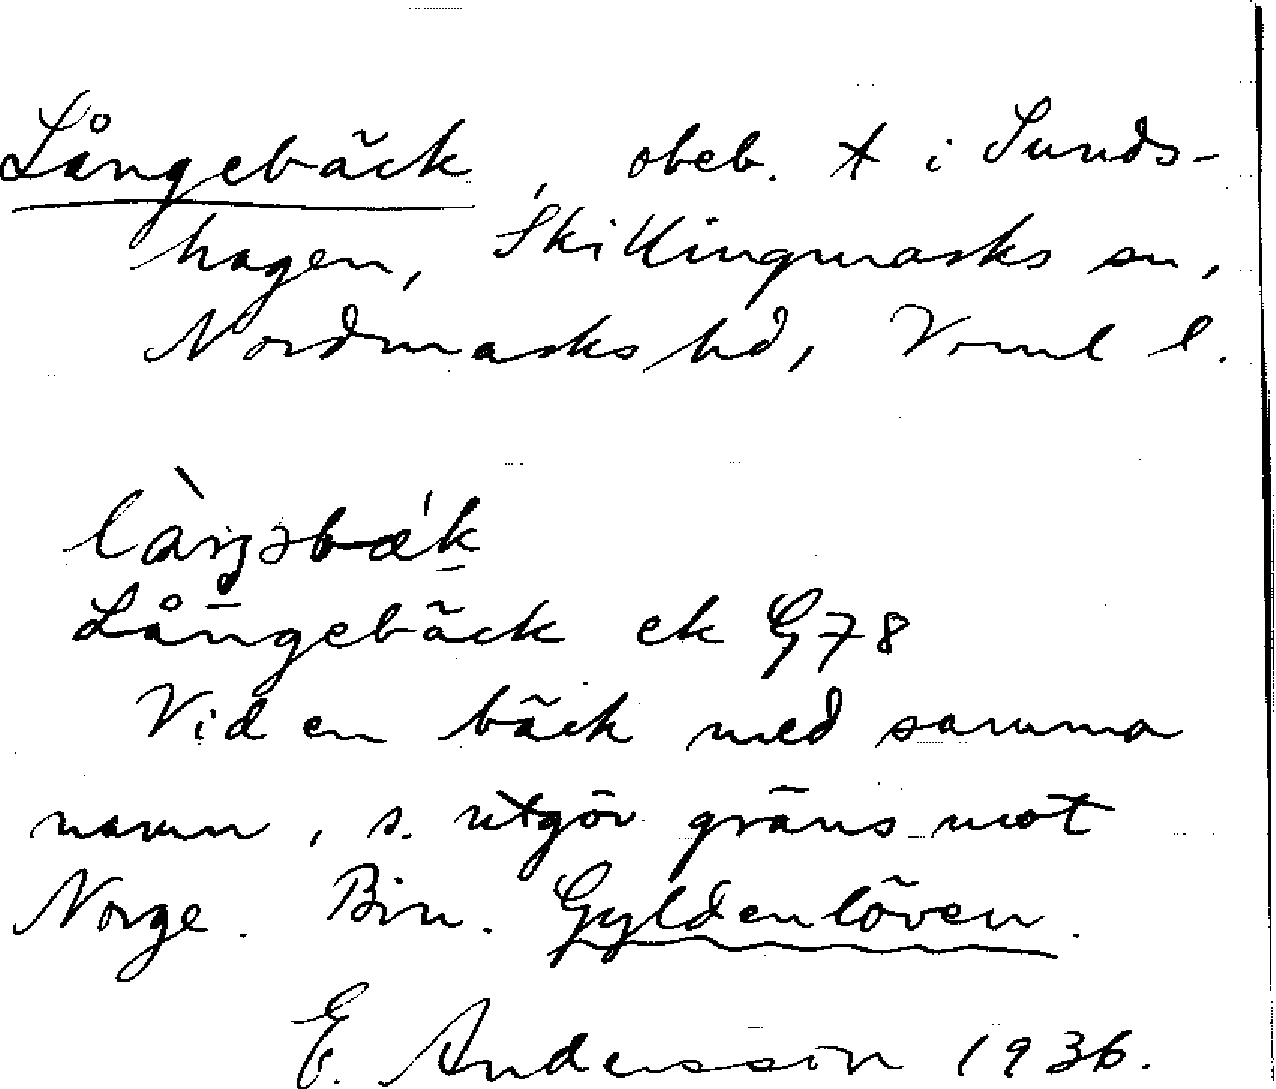 Långebäck, obeb. t i Sunds-
hagen, Skillingmarks sn,
Nordmarks hd, Vrml l.
làŋəbæ'k
Långebäck ek G78
Vid en bäck med samma
namn, s. utgör gräns mot
Norge. Bin. Gyldenlöven.
E. Andersson 1936.